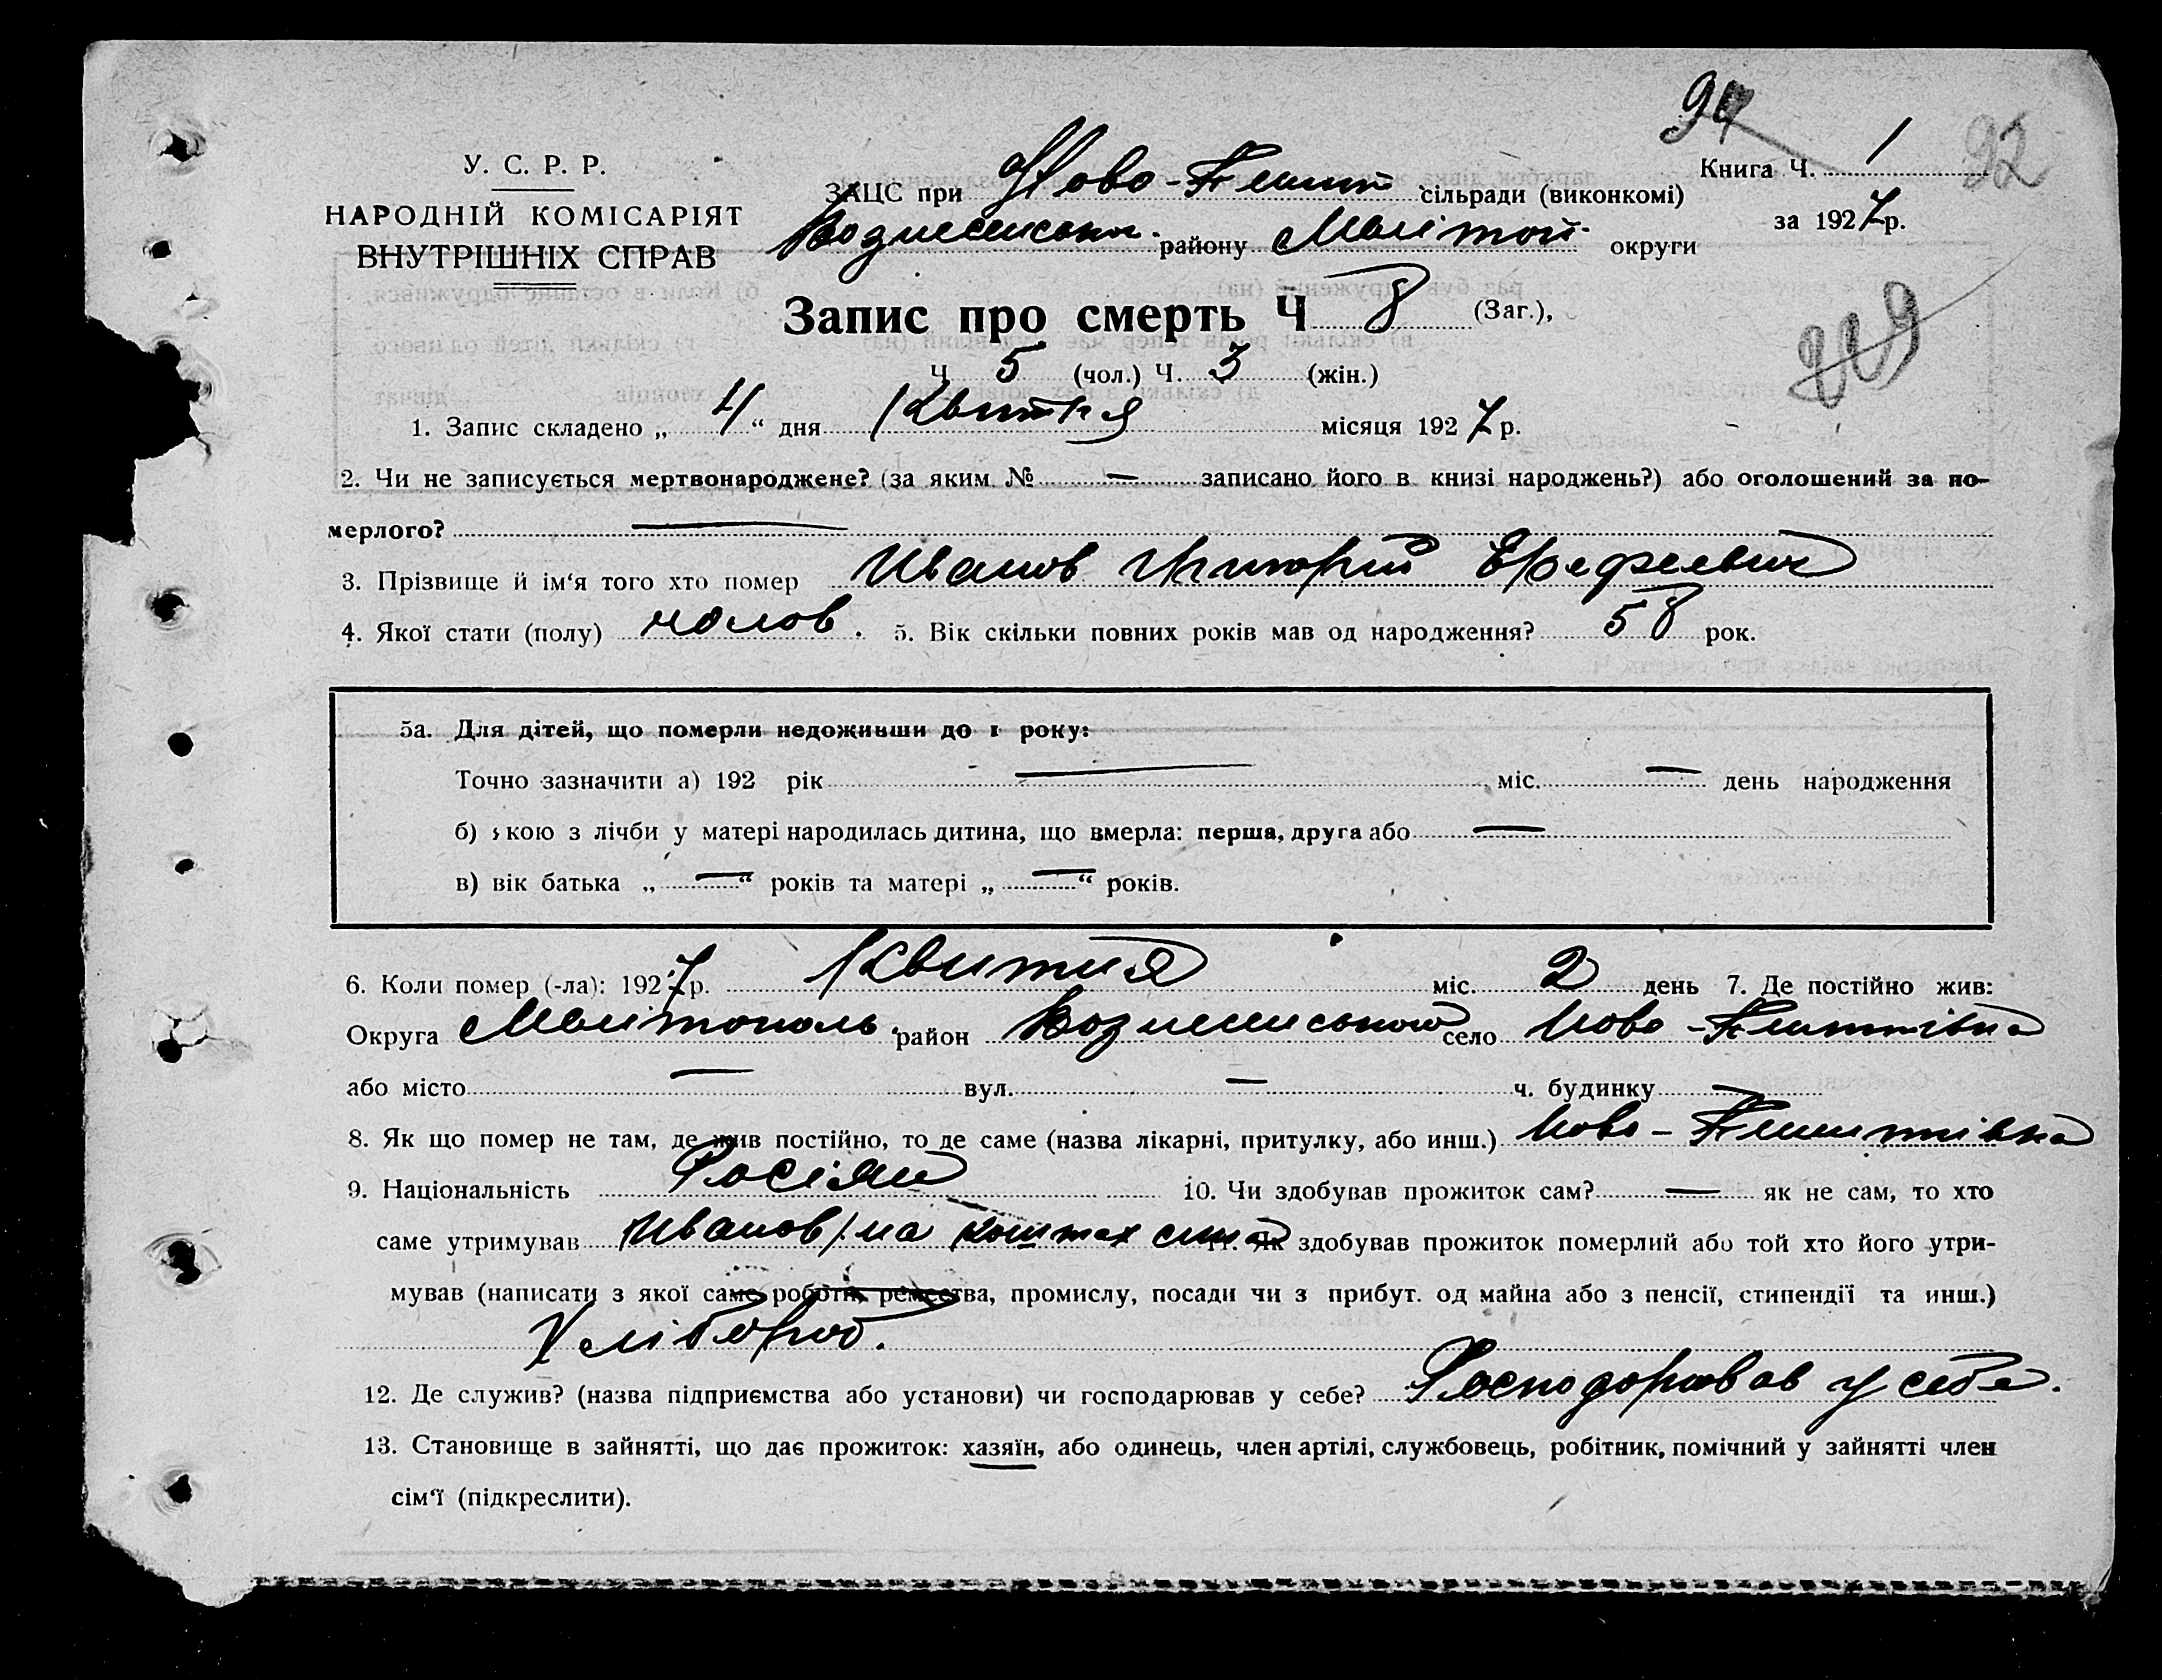 94 92
У. С. Р. Р.
НАРОДНІЙ КОМІСАРІЯТ
ВНУТРІШНІХ СПРАВ
Книга Ч. 1
за 1927 р.
ЗАЦС при Ново- сільради (виконкомі)
району округи
Запис про смерть Ч 8 (Заг.),
229
Ч 5 (чол.) Ч. 3 (жін.)
1. Запис складено „ 4 “ дня Квітня місяця 1927 р.
2. Чи не записується мертвонароджене? (за яким № — записано його в книзі народжень?) або оголошений за по-
мерлого? —
3. Прізвище й ім‘я того хто помер Иванов Григорий
4. Якої стати (полу) чолов. 5. Вік скільки повних років мав од народження? 58 рок.
5а. Для дітей, що померли недоживши до 1 року:
Точно зазначити а) 192 рік — міс. — день народження
б) якою з лічби у матері народилась дитина, що вмерла: перша, друга або —
в) вік батька „ — “ років та матері „ — “ років.
6. Коли помер (-ла): 1927 р. Квитня міс. 2 день 7. Де постійно жив:
Округа район село Ново-
або місто — вул. — ч. будинку —
8. Як що помер не там, де жив постійно, то де саме (назва лікарні, притулку, або инш.) Ново-
9. Національність Росіян 10. Чи здобував прожиток сам? — як не сам, то хто
саме утримував Иванов на коштах сина 11. Як здобував прожиток померлий або той хто його утри-
мував (написати з якої саме роботи, ремества, промислу, посади чи з прибут. од майна або з пенсії, стипендії та инш.)
Хлібороб.
12. Де служив? (назва підприємства або установи) чи господарював у себе? у себе.
13. Становище в зайнятті, що дає прожиток: хазяїн, або одинець, член артілі, службовець, робітник, помічний у зайнятті член
сім‘ї (підкреслити).